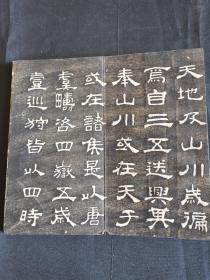 天地及山川歲徧
焉自三五迭興其
奉山川或在天子
或在諸侯是以唐
虞疇咨四嶽五歲
壹巡狩皆以四時